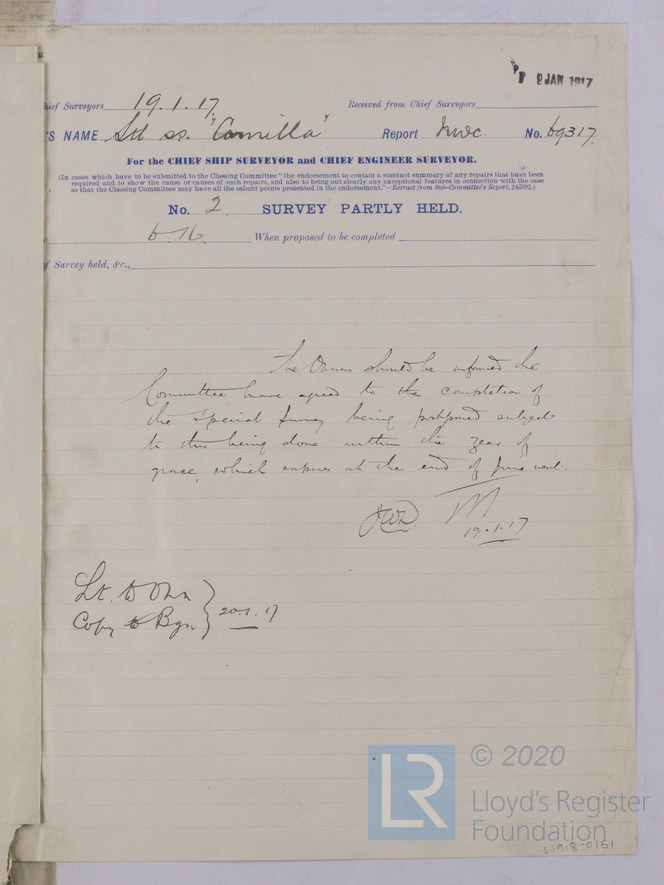 9 JAN 1917
hief Surveyors 19.1.17. Received from Chief Surveyors
'S NAME Stl ss. "Camilla" Report Nwc. No. 69317.
For the CHIEF SHIP SURVEYOR and CHIEF ENGINEER SURVEYOR.
(In cases which have to be submitted to the Classing Committee "the endorsement to contain a succinct summary of any repairs that have been
required and to show the cause or causes of such repairs, and also to bring out clearly any exceptional features in connection with the case
so that the Classing Committee may have all the salient points presented in the endorsement."—Extract from Sub-Committee's Report, 24/5/92.)
No. 2 SURVEY PARTLY HELD.
6.16. When proposed to be completed
of Survey held, &c.,
The Owners should be informed the
Committee have agreed to the completion of
the Special Survey being postponed subject
to this being done within the year of
grace, which expires at the end of June next.
JWD.
19.1.17
Lt. to Own
Copy to Bgn } 20.1.17
LR
© 2020
Lloyd's Register
Foundation
W918-0151